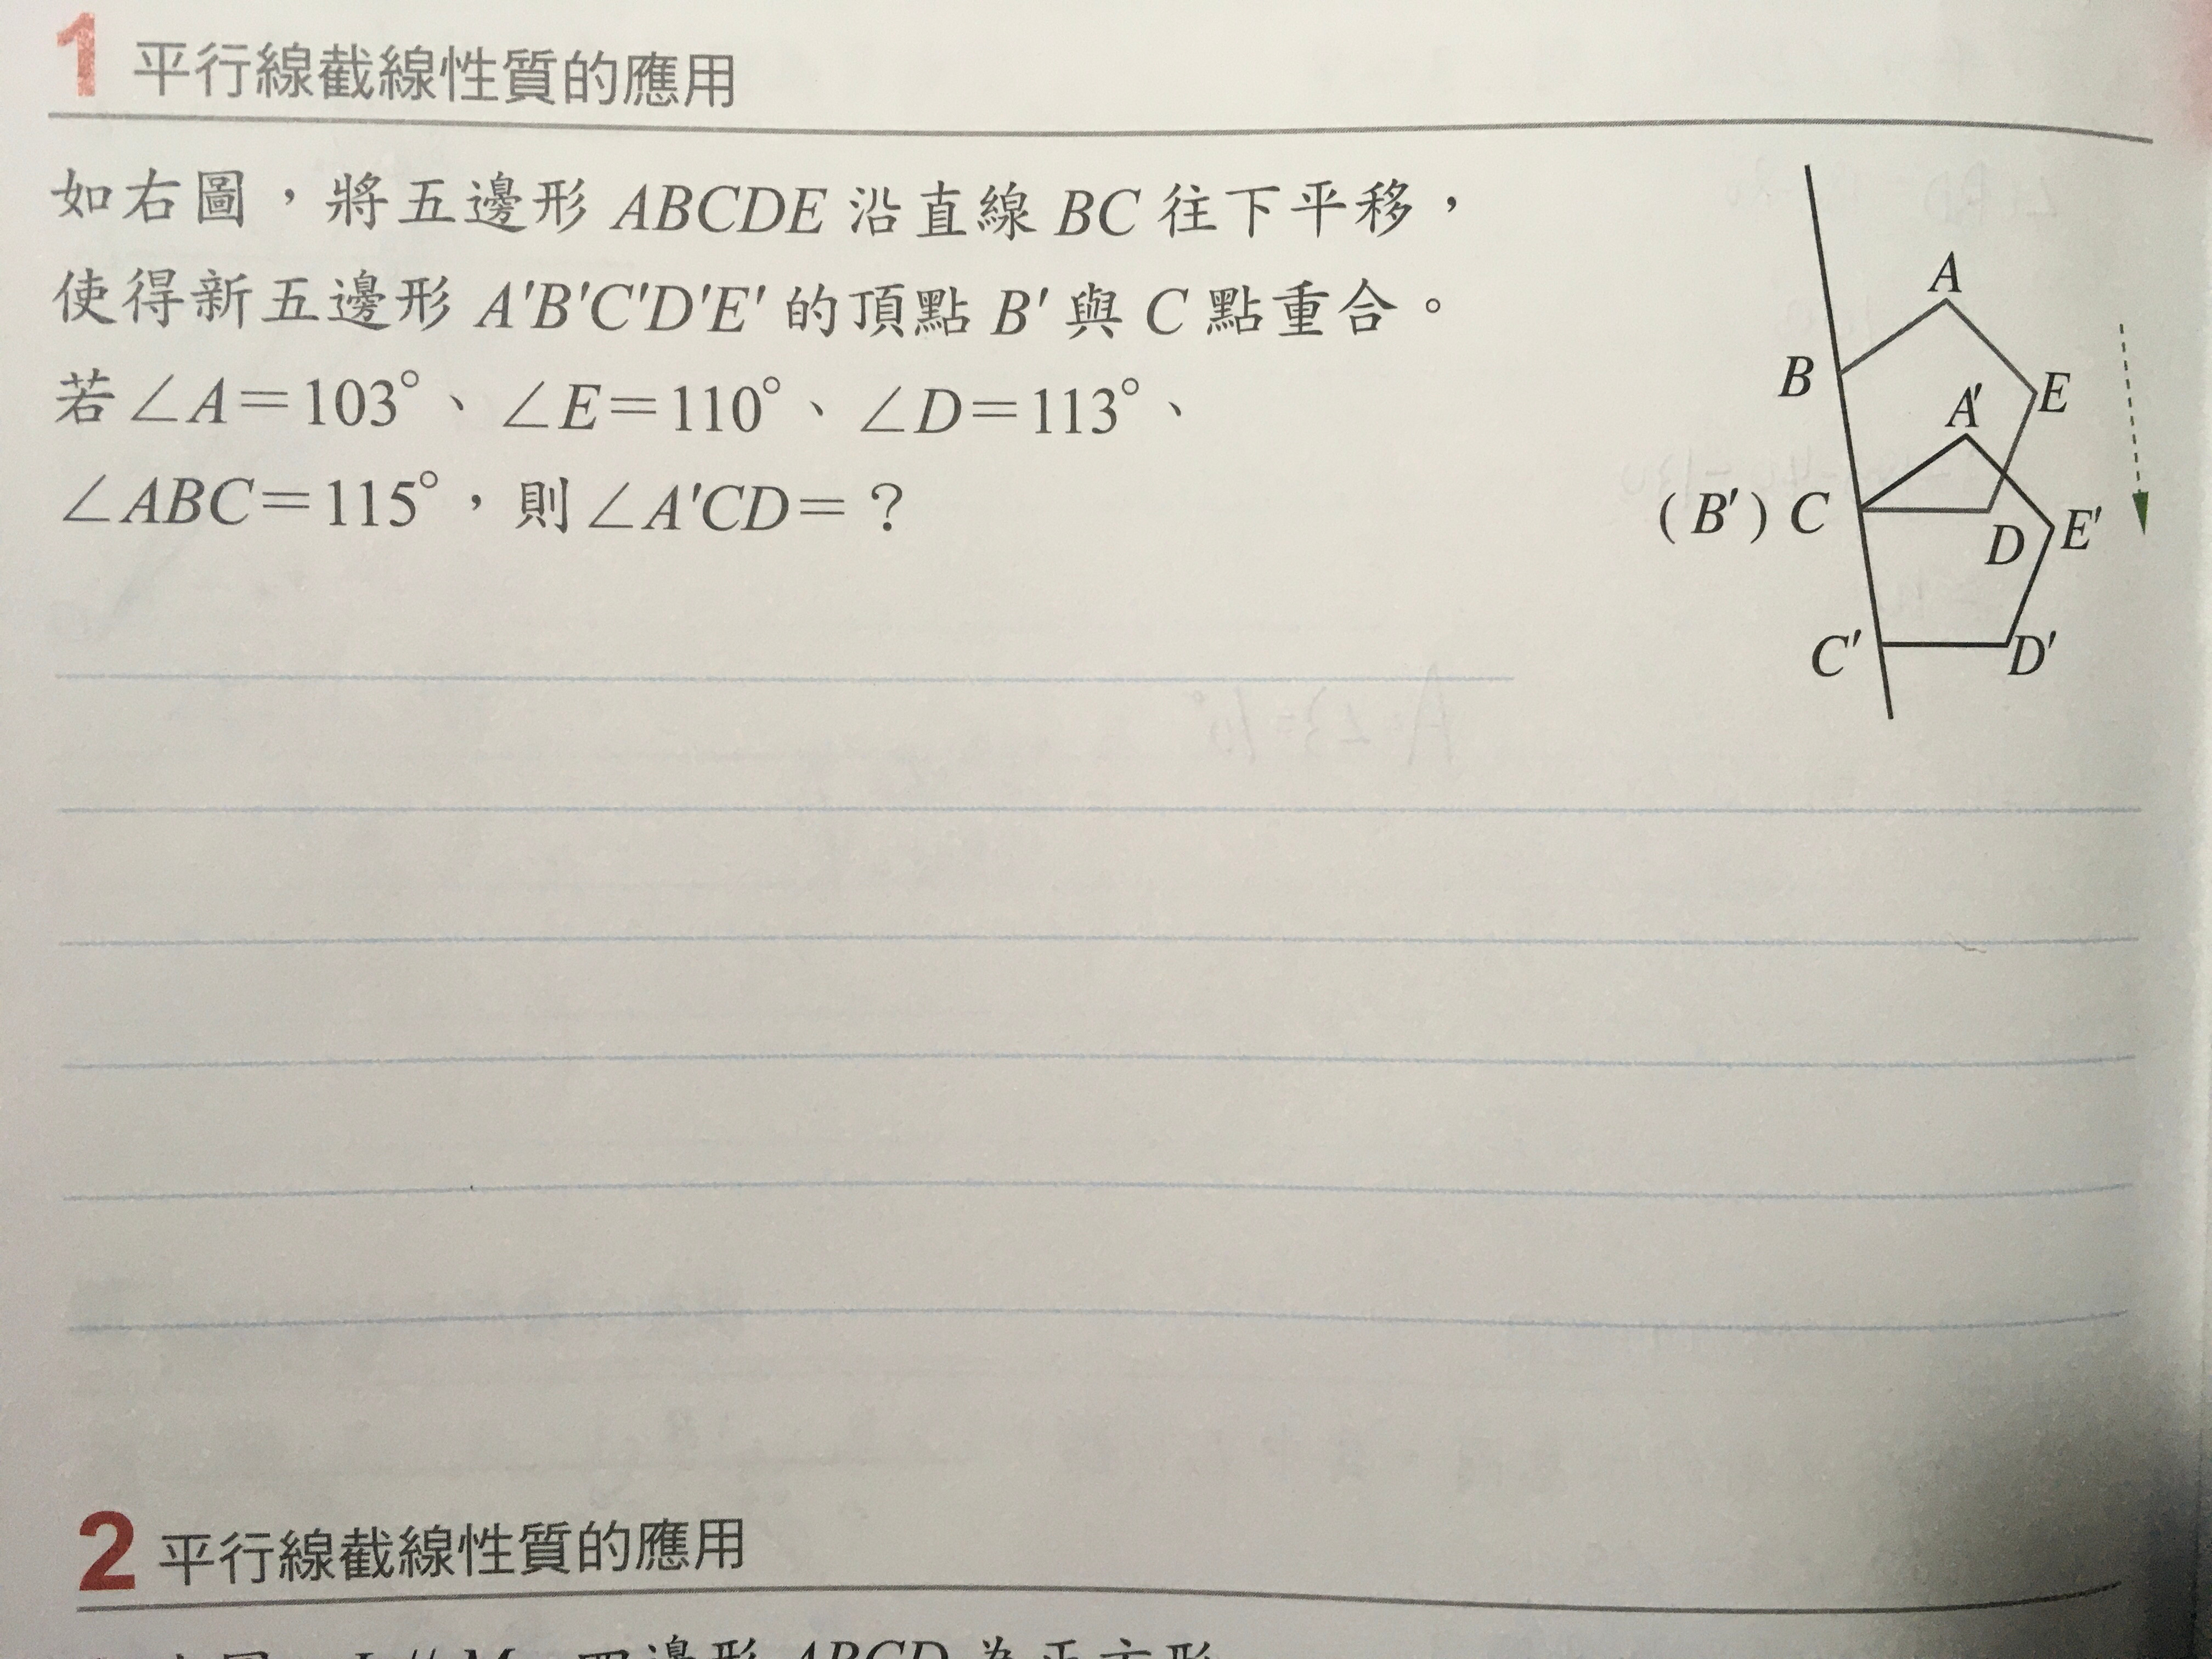 1 平行線截線性質的應用
如右圖，將五邊形 ABCDE 沿直線 BC 往下平移，
使得新五邊形 A'B'C'D'E' 的頂點 B' 與 C 點重合。
若∠A＝103°、∠E＝110°、∠D＝113°、
∠ABC＝115°，則∠A'CD＝？
A
B
E
A'
(B') C
D
E'
C'
D'
2 平行線截線性質的應用
四邊形 ABCD 為正方形